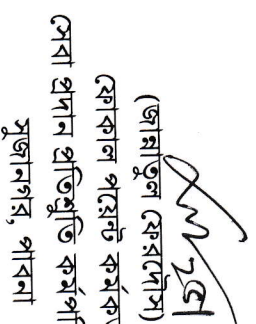 (জান্নাতুল ফেরদৌস)
ফোকাল পয়েন্ট কর্মক
সেবা প্রদান প্রতিশ্রুতি কর্মপরি
সুজানগর, পাবনা